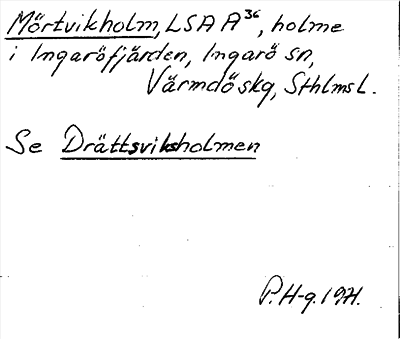 Mörtvikholm, LSA A³⁶, holme
i Ingaröfjärden, Ingarö sn,
Värmdö skg, Sthlms L.
Se Drättsviksholmen
P.H-g. 1971.